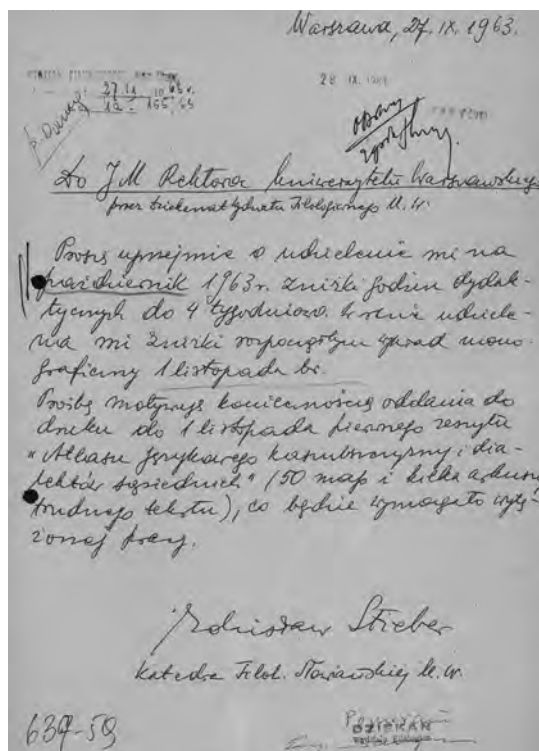 Warszawa, 27.IX.1963.
28 IX. 1963
27.IX 1963 r.
Do J M Rektora Uniwersytetu Warszawskiego
przez Dziekanat Wydziału Filologicznego U.W.
Proszę uprzejmie o udzielenie mi na
październik 1963 r. zniżki godzin dydak-
tycznych do 4 tygodniowo. W razie udziele-
nia mi zniżki rozpocząłbym wykład mono-
graficzny 1 listopada br.
Prośbę motywuję koniecznością oddania do
druku do 1 listopada pierwszego zeszytu
"Atlasu językowego kaszubszczyzny i dia-
lektów sąsiednich" (50 map i kilka arkuszy
trudnego tekstu), co będzie wymagało wytę-
żonej pracy.
Zdzisław Stieber
Katedra Filol. Słowiańskiej U.W.
DZIEKAN
639-59